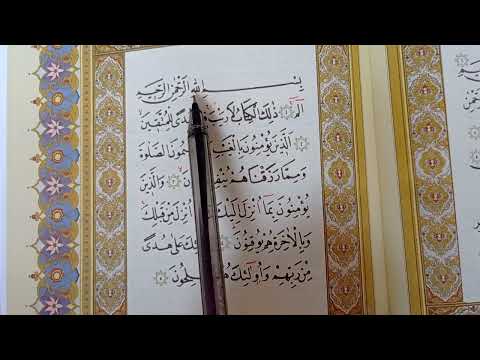 بِسْمِ اللهِ الرَّحْمٰنِ الرَّحِيمِ
الٓمٓ ﴿١﴾ ذٰلِكَ الْكِتَابُ لَا رَيْبَ لِلْمُتَّقِينَ ﴿٢﴾
اَلَّذِينَ يُؤْمِنُونَ بِالْغَيْبِ الصَّلٰوةَ
وَمِمَّا رَزَقْنَاهُمْ ﴿٣﴾ وَالَّذِينَ
يُؤْمِنُونَ بِمَٓا اُنْزِلَ اِلَيْكَ اُنْزِلَ مِنْ قَبْلِكَ
وَبِالْاٰخِرَةِ هُمْ يُوقِنُونَ عَلٰى هُدًى
مِنْ رَبِّهِمْ وَاُولٰٓئِكَ ﴿٥﴾